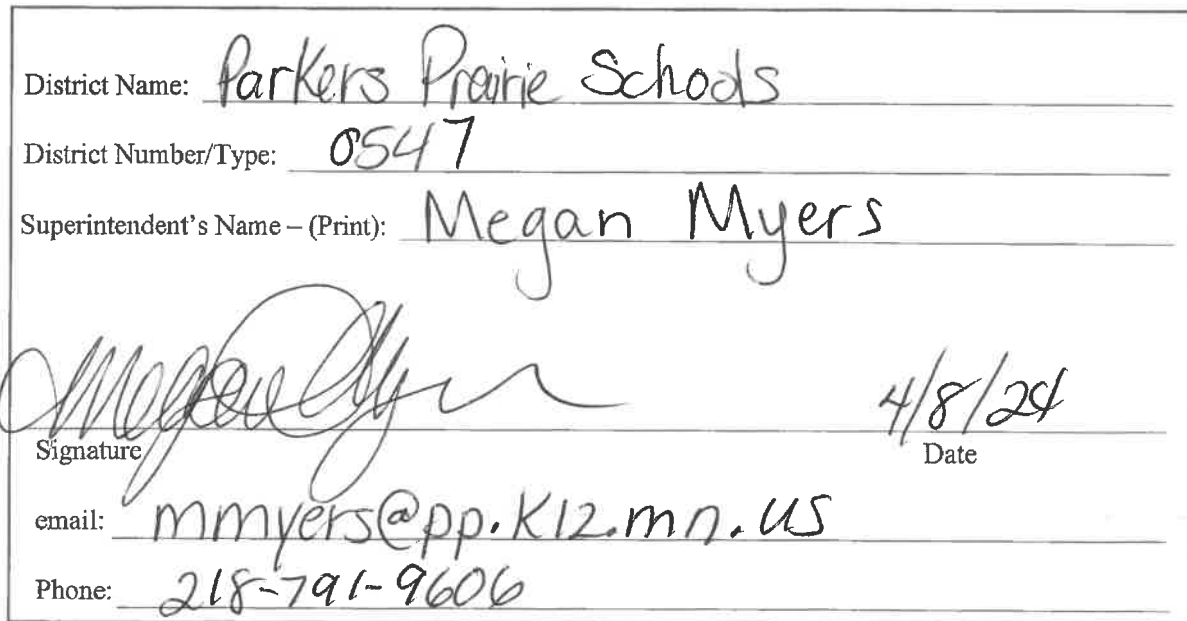 District Name: Parkers Prairie Schools
District Number/Type: 0547
Superintendent's Name – (Print): Megan Myers
Megan Myers 4/8/24
Signature Date
email: mmyers@pp.k12.mn.us
Phone: 218-791-9606